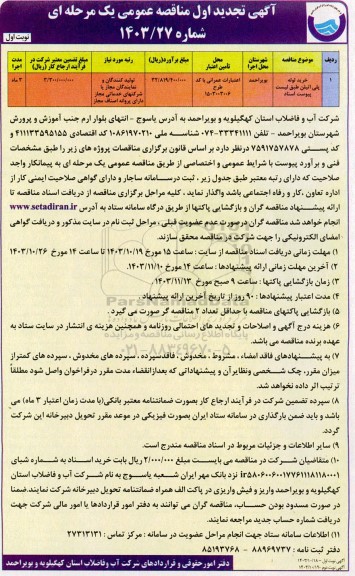 آگهی تجدید اول مناقصه عمومی یک مرحله ای
شماره ۱۴۰۳/۲۷
نوبت اول
ردیف
موضوع مناقصه
شهرستان محل اجرا
محل تامین اعتبار
مبلغ برآورد(ریال)
رتبه مورد نیاز
مبلغ تضمین معتبر شرکت در فرآیند ارجاع کار (ریال)
مدت اجرا
۱
خرید لوله پلی اتیلن طبق لیست پیوست اسناد
بویراحمد
اعتبارات عمرانی با کد طرح
تولید کنندگان و نمایندگان مجاز یا شرکتهای خدماتی مجاز دارای پروانه اصناف مجاز
۳ ماه
شرکت آب و فاضلاب استان کهگیلویه و بویراحمد به آدرس یاسوج - انتهای بلوار ارم جنب آموزش و پرورش
شهرستان بویراحمد - تلفن ۳۳۳۴۱۱۱۱-۰۷۴ شناسه ملی ۱۰۸۶۱۹۷۰۲۱۰ کد اقتصادی ۴۱۱۱۳۳۵۹۵۱۵۵ و
کد پستی ۷۵۹۱۷۵۷۸۷۸ درنظر دارد بر اساس قانون برگزاری مناقصات پروژه های زیر را طبق مشخصات
فنی و برآورد پیوست با شرایط عمومی و اختصاصی از طریق مناقصه عمومی یک مرحله ای به پیمانکار واجد
صلاحیت که دارای رتبه معتبر طبق جدول زیر ، ثبت درسامانه ساجار و دارای گواهی صلاحیت ایمنی کار از
اداره تعاون ،کار و رفاه اجتماعی باشد واگذار نماید ، کلیه مراحل برگزاری مناقصه از دریافت اسناد مناقصه تا
ارائه پیشنهاد مناقصه گران و بازگشایی پاکتها از طریق درگاه سامانه ستاد به آدرس www.setadiran.ir
انجام خواهد شد مناقصه گران درصورت عدم عضویت قبلی ، مراحل ثبت نام در سایت مذکور و دریافت گواهی
امضای الکترونیکی را جهت شرکت در مناقصه محقق سازند.
۱) مهلت زمانی دریافت اسناد مناقصه از سایت : ساعت ۱۵ مورخ ۱۴۰۳/۱۰/۱۹ تا ساعت ۱۴ مورخ ۱۴۰۳/۱۰/۲۶
۲) آخرین مهلت زمانی ارائه پیشنهادها : ساعت ۱۴ مورخ ۱۴۰۳/۱۱/۱۰
۳) زمان بازگشایی پاکتها : ساعت ۹ صبح مورخ ۱۴۰۳/۱۱/۱۳
۴) مدت اعتبار پیشنهادها : ۹۰ روز از تاریخ آخرین ارائه پیشنهاد
۵) بازگشایی پاکتهای مناقصه با حداقل تعداد ۲ مناقصه گر صورت می گیرد .
۶) هزینه درج آگهی و اصلاحات و تجدید های احتمالی روزنامه و همچنین هزینه ی انتشار در سایت ستاد به
عهده برنده مناقصه می باشد.
۷) به پیشنهادهای فاقد امضاء ، مشروط ، مخدوش ، فاقدسپرده ، سپرده های مخدوش ، سپرده های کمتر از
میزان مقرر، چک شخصی ونظایر آن و پیشنهاداتی که بعدازانقضاء مدت مقرر درفراخوان واصل شود مطلقاً
ترتیب اثر داده نخواهد شد.
۸) سپرده تضمین شرکت در فرآیند ارجاع کار بصورت ضمانتنامه معتبر بانکی(با مدت زمان اعتبار ۳ ماه) می
باشد و باید ضمن بارگذاری در سامانه ستاد ایران بصورت فیزیکی در موعد مقرر تحویل دبیرخانه این شرکت
گردد.
۹) سایر اطلاعات و جزئیات مربوط در اسناد مناقصه مندرج است.
۱۰) متقاضیان شرکت در مناقصه می بایست مبلغ ۲/۰۰۰/۰۰۰ ریال بابت خرید اسناد به شماره شبای
نزد بانک مهر ایران شعبه یاسوج به نام شرکت آب و فاضلاب استان
کهگیلویه و بویراحمد واریز و فیش واریزی در پاکت الف همراه ضمانتنامه تحویل دبیرخانه شرکت نمایند.ضمنا
در صورت مسدود بودن حساب، مناقصه گران می توانند به دفتر امور قراردادها یا امور مالی شرکت جهت
دریافت شماره حساب جدید مراجعه نمایند.
۱۱) اطلاعات سامانه ستاد جهت انجام مراحل عضویت در سامانه : مرکز تماس : ۲۷۳۱۳۱۳۱
دفتر ثبت نامه : ۸۸۹۶۹۷۳۷ - ۸۵۱۹۳۷۶۸
دفتر امورحقوقی و قراردادهای شرکت آب وفاضلاب استان کهگیلویه و بویراحمد